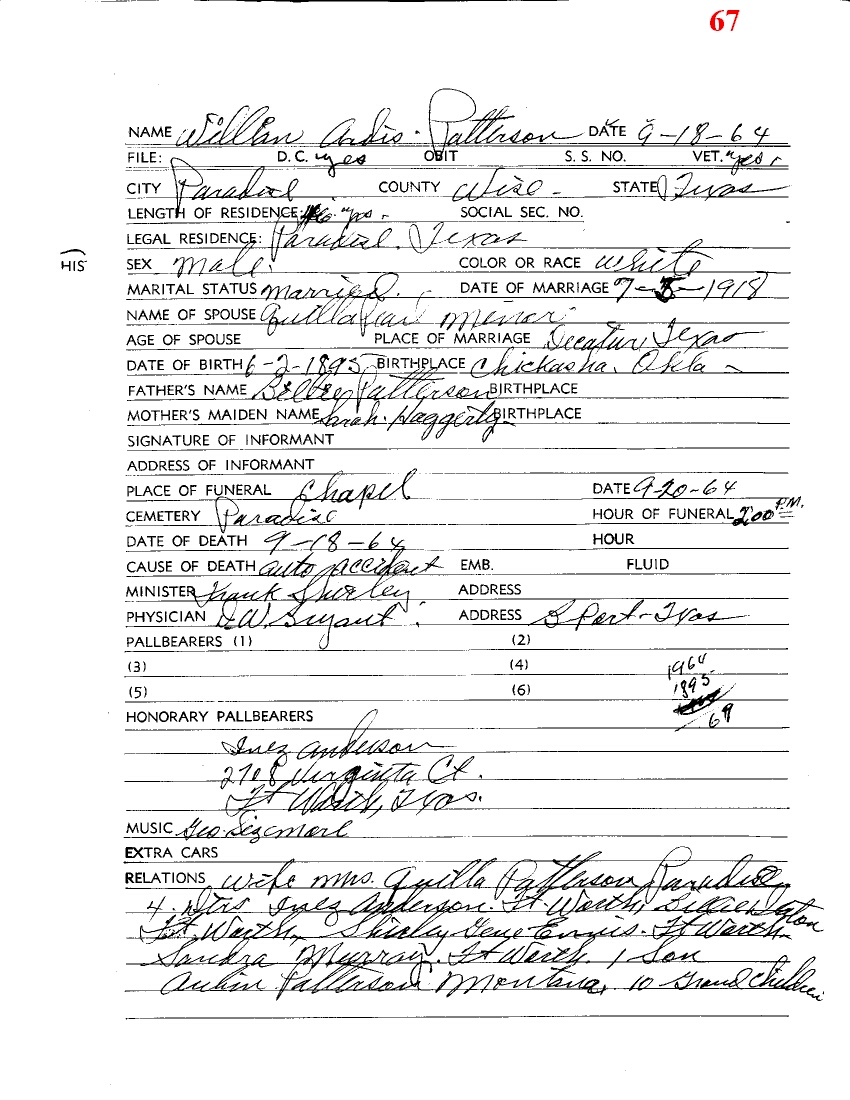 67
NAME William Ardis Patterson DATE 9-18-64
FILE: D.C. yes OBIT S. S. NO. VET. yes
CITY Paradise COUNTY Wise - STATE Texas
LENGTH OF RESIDENCE: yrs - SOCIAL SEC. NO.
LEGAL RESIDENCE: Paradise, Texas
HIS
SEX Male COLOR OR RACE White
MARITAL STATUS Married DATE OF MARRIAGE 7-5-1918
NAME OF SPOUSE Quilla Minor
AGE OF SPOUSE PLACE OF MARRIAGE Decatur, Texas
DATE OF BIRTH 6-2-1895 BIRTHPLACE Chickasha, Okla -
FATHER'S NAME Patterson BIRTHPLACE
MOTHER'S MAIDEN NAME Sarah Haggerty BIRTHPLACE
SIGNATURE OF INFORMANT
ADDRESS OF INFORMANT
PLACE OF FUNERAL Chapel DATE 9-20-64
CEMETERY Paradise HOUR OF FUNERAL 2:00 P.M.
DATE OF DEATH 9-18-64 HOUR
CAUSE OF DEATH auto accident EMB. FLUID
MINISTER Frank Shirley ADDRESS
PHYSICIAN D.W. Bryant ADDRESS B Port - Txas
PALLBEARERS (1) (2)
(3) (4) 1964
1895
(5) (6)
69
HONORARY PALLBEARERS
Inez Anderson
2708 Virginia Ct.
Ft Worth, Txas.
MUSIC Geo. Sizemore
EXTRA CARS
RELATIONS Wife Mrs. Quilla Patterson Paradise
4 Dtrs Inez Anderson. Ft Worth, Billie
Ft. Worth, Shirley Gene Ennis. Ft Worth
Sandra Murray. Ft Worth. 1 Son
Patterson Montana, 10 Grand Children